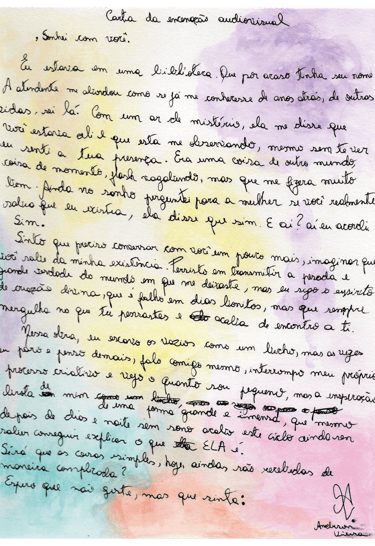 Carta da encenação audiovisual
, Sonhei com você.
Eu estava em uma biblioteca. Que por acaso tinha seu nome
A atendente me abordou como se já me conhecesse de anos atrás, de outras
vidas, sei lá. Com um ar de mistério, ela me disse que
você estava ali e que esta me observando, mesmo sem te ver
eu senti a tua presença. Era uma coisa de outro mundo
coisa de momento, flash vagalundo, mas que me fizera muito
bem. Ainda no sonho perguntei para a mulher se você realmente
sabia que eu existia, ela disse que sim. E ai? aí eu acordei
Sim.
Sinto que preciso conversar com você um pouco mais, imaginar que
você sabe da minha existência. Persisto em transmitir a pesada e
grande verdade do mundo em que me deixaste, mas eu sigo o espirito
de criação divina, que é falho em dias bonitos, mas que sempre
mergulha no que tu pensantes e acaba de encontro a ti.
Nessa obra, eu escavo os vazios como um bicho, mas as vezes
eu paro e penso demais, falo comigo mesmo, interrompo meu próprio
processo criativo e vejo o quanto sou pequeno, mas a inspiração
brota de mim
de uma forma grande e imensa, que mesmo
depois de dias e noite sem sono acabo este ciclo ainda sem
saber conseguir explicar o que ELA é.
Será que as coisas simples, hoje, ainda são recebidas de
maneira complicada?
Espero que não goste, mas que sinta:
Anderson
Vieira